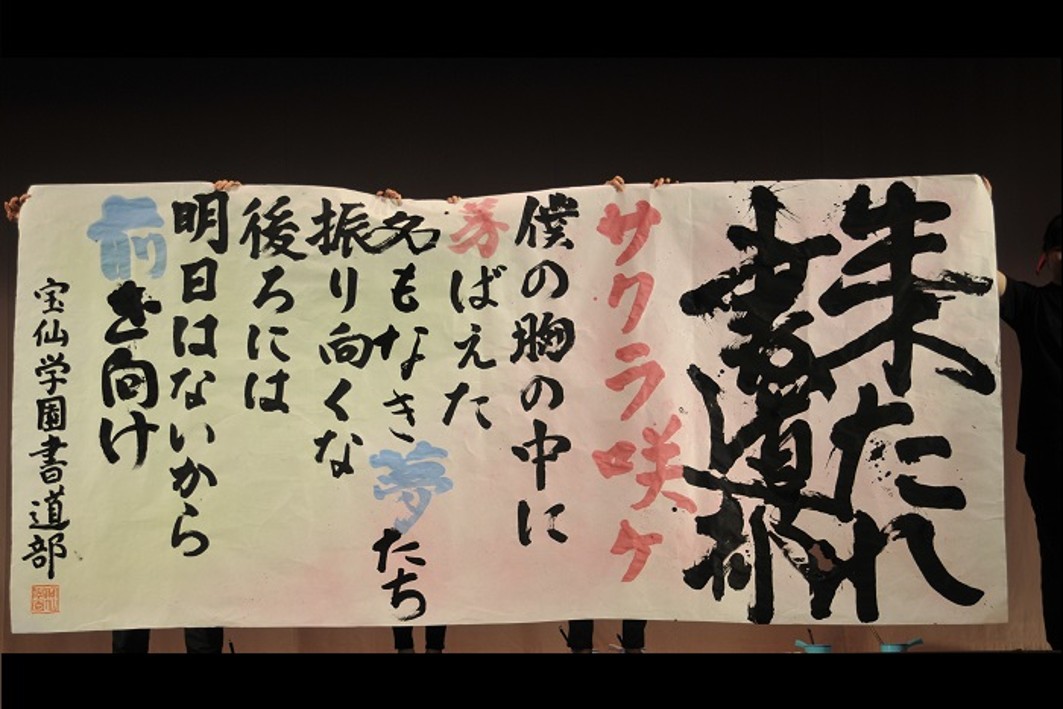 来たれ
書道部
サクラ咲ケ
僕の胸の中に
芽ばえた
名もなき夢たち
振り向くな
後ろには
明日はないから
前を向け
宝仙学園書道部